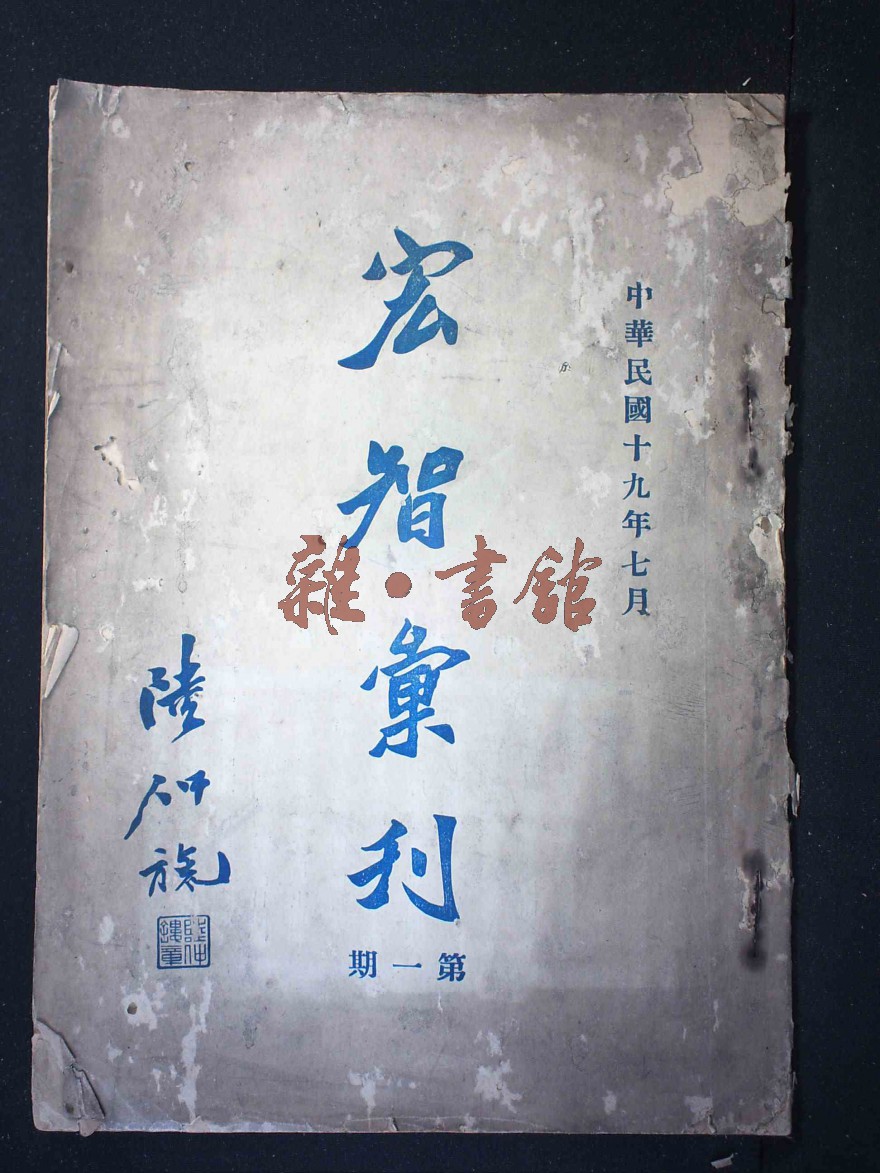 中華民國十九年七月
宏智彙刊
第一期
陸仲
雜·書館